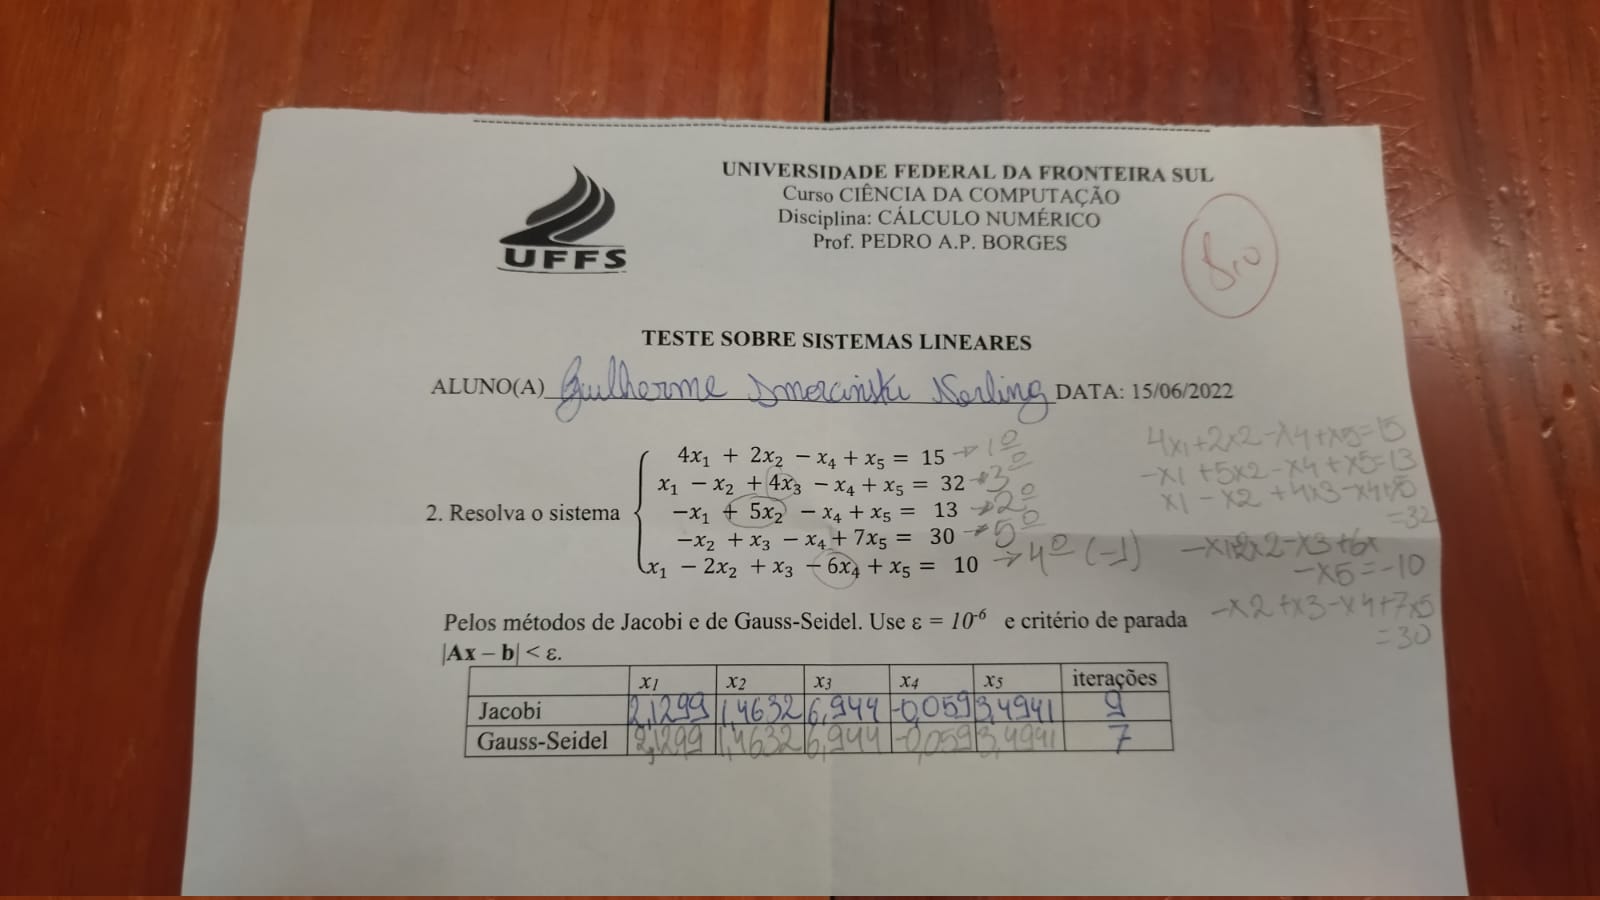 UNIVERSIDADE FEDERAL DA FRONTEIRA SUL
Curso CIÊNCIA DA COMPUTAÇÃO
Disciplina: CÁLCULO NUMÉRICO
Prof. PEDRO A.P. BORGES
UFFS
8,0
TESTE SOBRE SISTEMAS LINEARES
ALUNO(A) Guilherme DATA: 15/06/2022
4x₁ + 2x₂ − x₄ + x₅ = 15 → 1º
x₁ − x₂ + 4x₃ − x₄ + x₅ = 32 → 3º
2. Resolva o sistema −x₁ + 5x₂ − x₄ + x₅ = 13 → 2º
−x₂ + x₃ − x₄ + 7x₅ = 30 → 5º
x₁ − 2x₂ + x₃ − 6x₄ + x₅ = 10 → 4º (-1)
4x1+2x2-x4+x5=15
-x1+5x2-x4+x5=13
x1-x2+4x3-x4+x5
=32
-x5=-10
-x2+x3-x4+7x5
=30
Pelos métodos de Jacobi e de Gauss-Seidel. Use ε = 10⁻⁶ e critério de parada
|Ax – b| < ε.
x₁ x₂ x₃ x₄ x₅ iterações
Jacobi 2,1299 1,4632 6,944 -0,059 3,4941 9
Gauss-Seidel 2,1299 1,4632 6,944 -0,059 3,4941 7